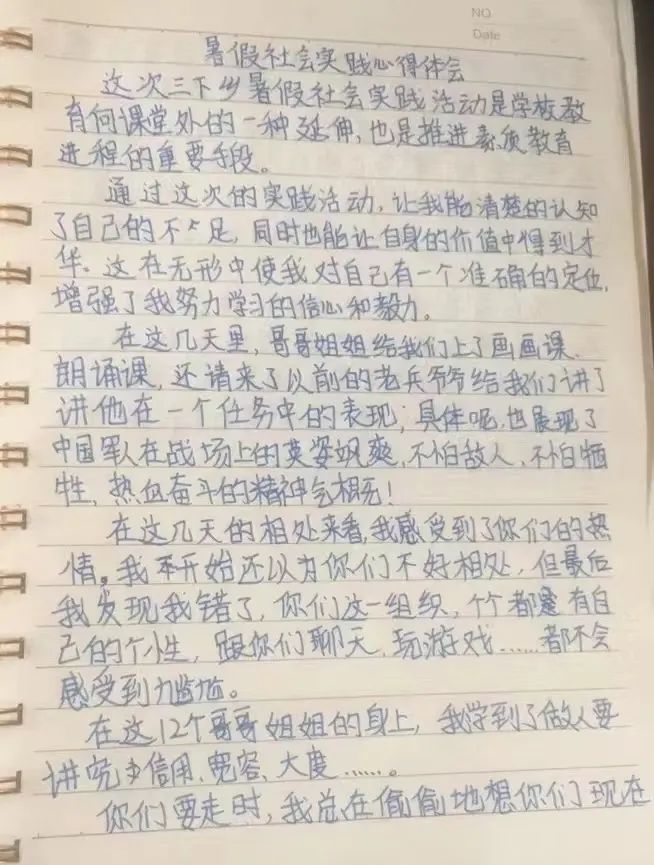 NO.
Date
暑假社会实践心得体会
这次三下乡暑假社会实践活动是学校教
育向课堂外的一种延伸,也是推进素质教育
进程的重要手段。
通过这次的实践活动,让我能清楚的认知
了自己的不足,同时也能让自身的价值中得到才
华。这在无形中使我对自己有一个准确的定位,
增强了我努力学习的信心和毅力。
在这几天里,哥哥姐姐给我们上了画画课、
朗诵课,还请来了以前的老兵爷爷给我们讲了
讲他在一个任务中的表现;具体呢,也展现了
中国军人在战场上的英姿飒爽,不怕敌人,不怕牺
牲,热血奋斗的精神气相死!
在这几天的相处来看,我感受到了你们的热
情。我开始还以为你们不好相处,但最后
我发现我错了,你们这一组织,个个都有自
己的个性,跟你们聊天,玩游戏……都不会
感受到尴尬。
在这12个哥哥姐姐的身上,我学到了做人要
讲究信用、宽容、大度……。
你们要走时,我总在偷偷地想你们现在